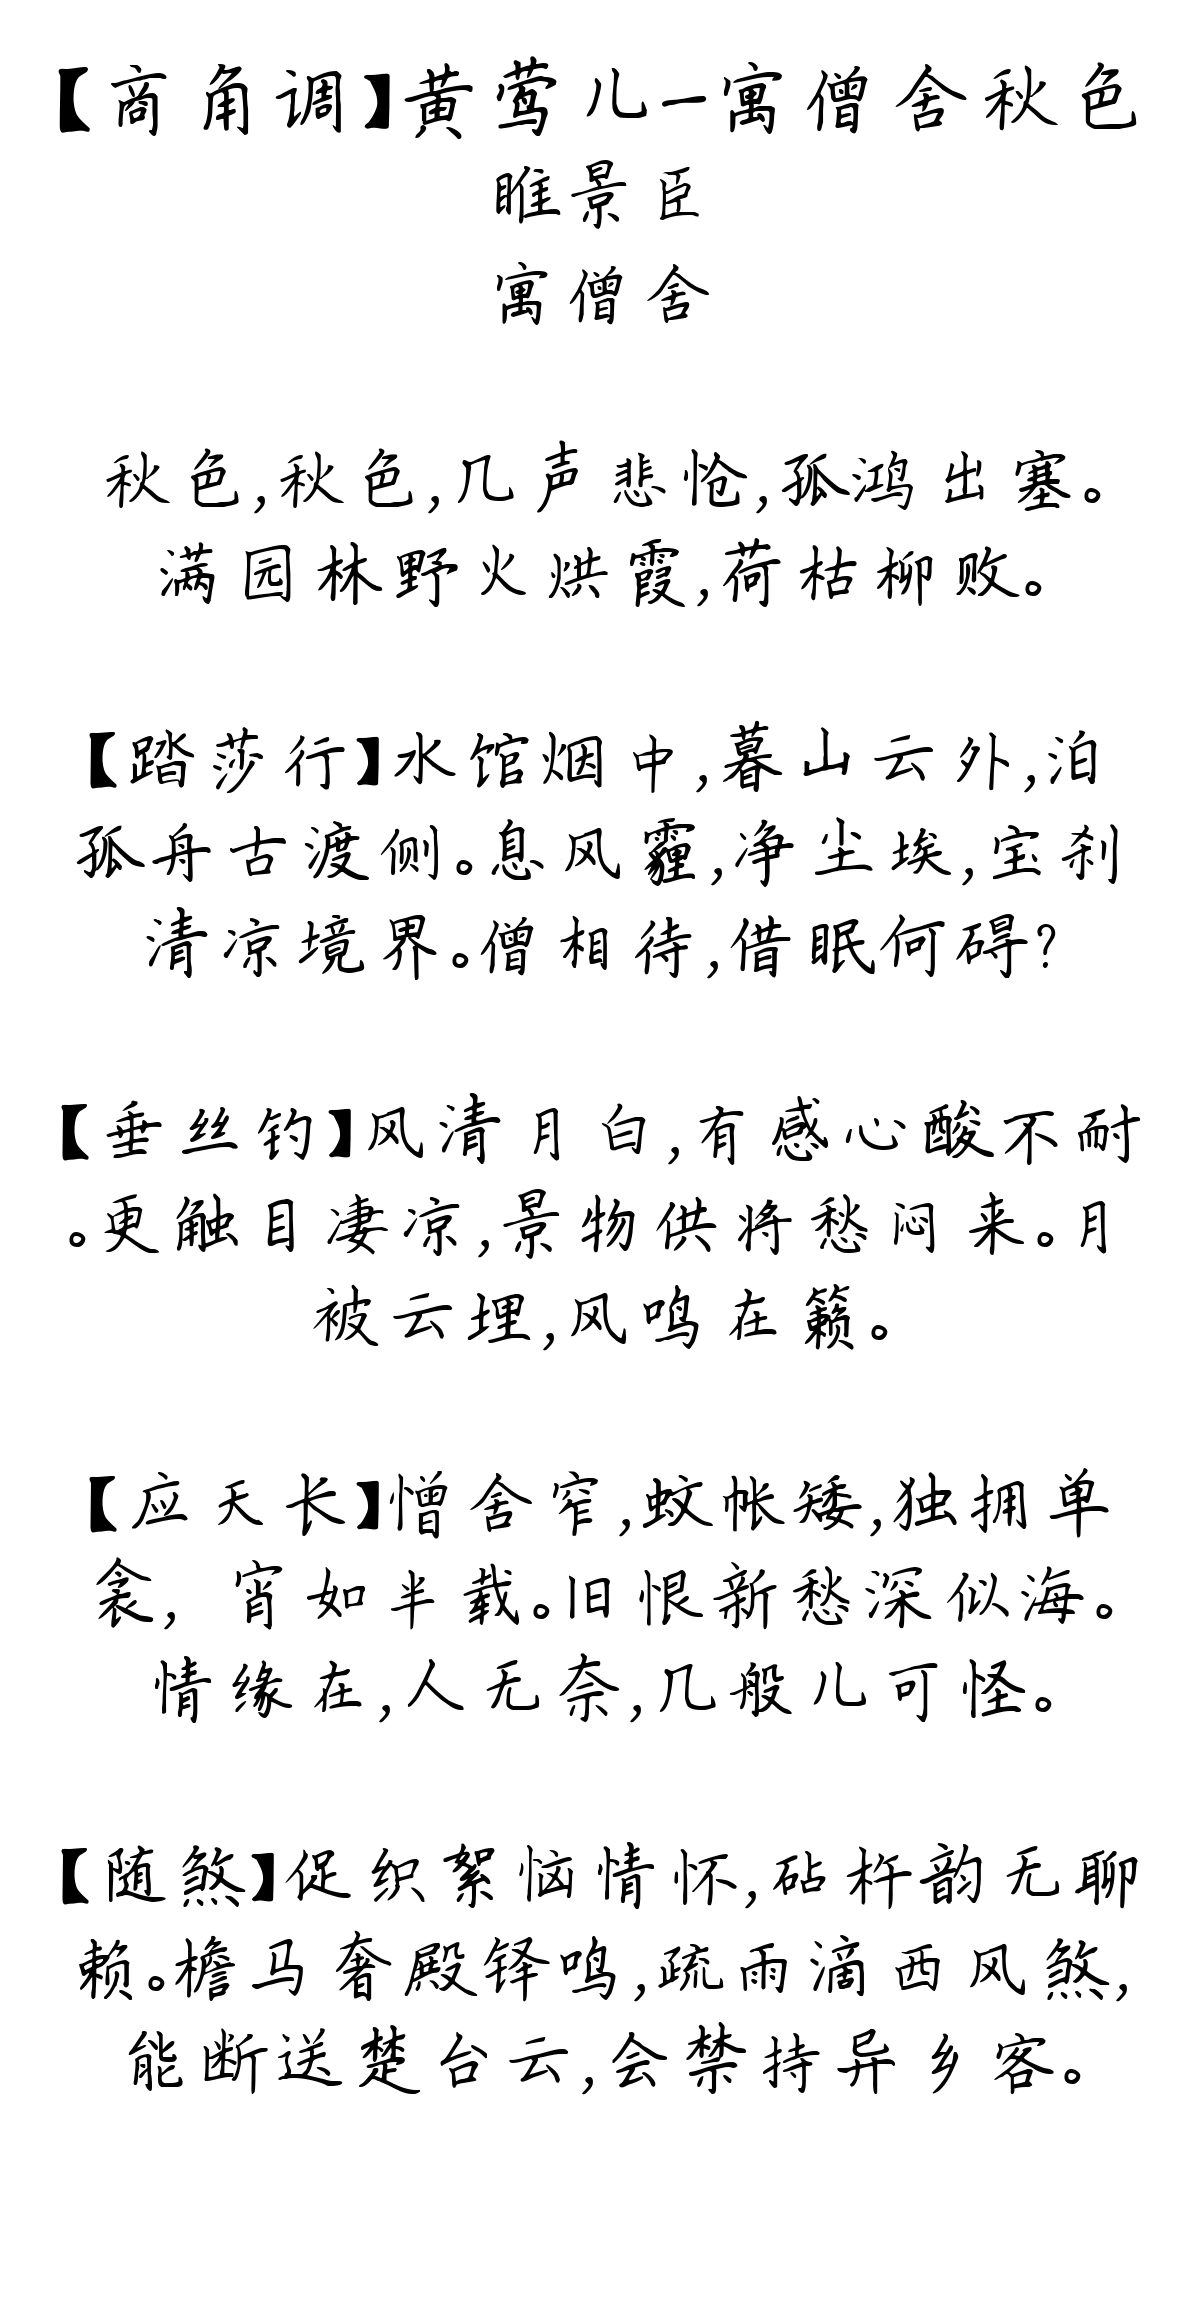 【商角调】黄莺儿-寓僧舍秋色
睢景臣
寓僧舍
秋色,秋色,几声悲怆,孤鸿出塞。
满园林野火烘霞,荷枯柳败。
【踏莎行】水馆烟中,暮山云外,泊
孤舟古渡侧。息风霾,净尘埃,宝刹
清凉境界。僧相待,借眠何碍?
【垂丝钓】风清月白,有感心酸不耐
。更触目凄凉,景物供将愁闷来。月
被云埋,风鸣在籁。
【应天长】憎舍窄,蚊帐矮,独拥单
衾, 宵如半载。旧恨新愁深似海。
情缘在,人无奈,几般儿可怪。
【随煞】促织絮恼情怀,砧杵韵无聊
赖。檐马奢殿铎鸣,疏雨滴西风煞,
能断送楚台云,会禁持异乡客。